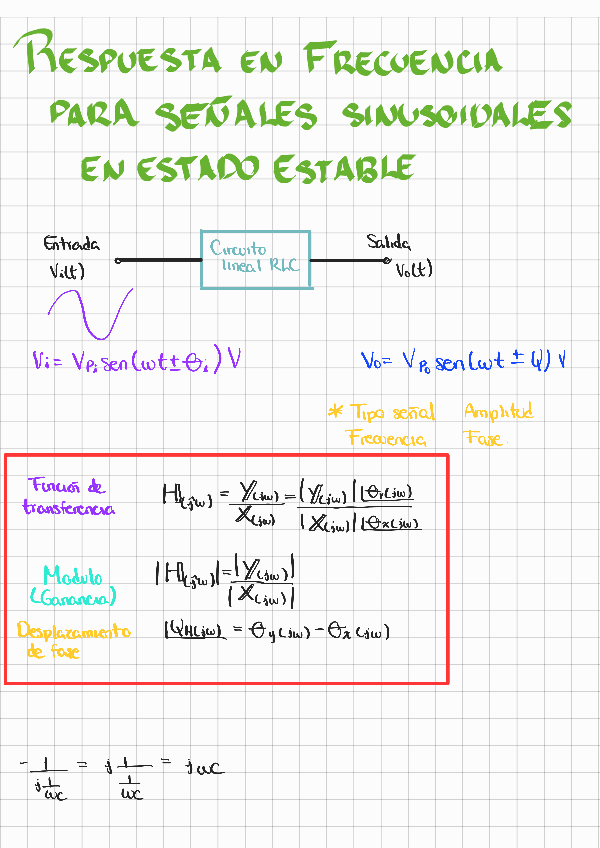 RESPUESTA EN FRECUENCIA
PARA SEÑALES SINUSOIDALES
EN ESTADO ESTABLE
Entrada
Vi(t)
Circuito
lineal RLC
Salida
Vo(t)
Vi = Vpi sen(ωt ± θi) V
Vo = Vpo sen(ωt ± φ) V
* Tipo señal Amplitud
Frecuencia Fase
Función de
transferencia
H(jω) = Y(jω) / X(jω) = |Y(jω)| ∠θy(jω) / |X(jω)| ∠θx(jω)
Modulo
(Ganancia)
|H(jω)| = |Y(jω)| / |X(jω)|
Desplazamiento
de fase
∠φH(jω) = θy(jω) - θx(jω)
- 1 / (j 1/ωC) = j 1 / (1/ωC) = jωC